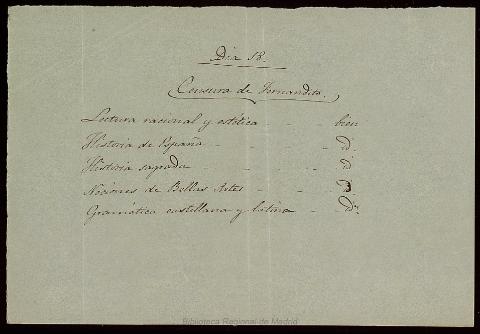 Día 18.
Censura de Fernandito.
Lectura racional y estética - - bien
Historia de España - - - id.
Historia sagrada - - - id
Nociones de Bellas Artes - - - id
Gramática castellana y latina - - id.
Biblioteca Regional de Madrid